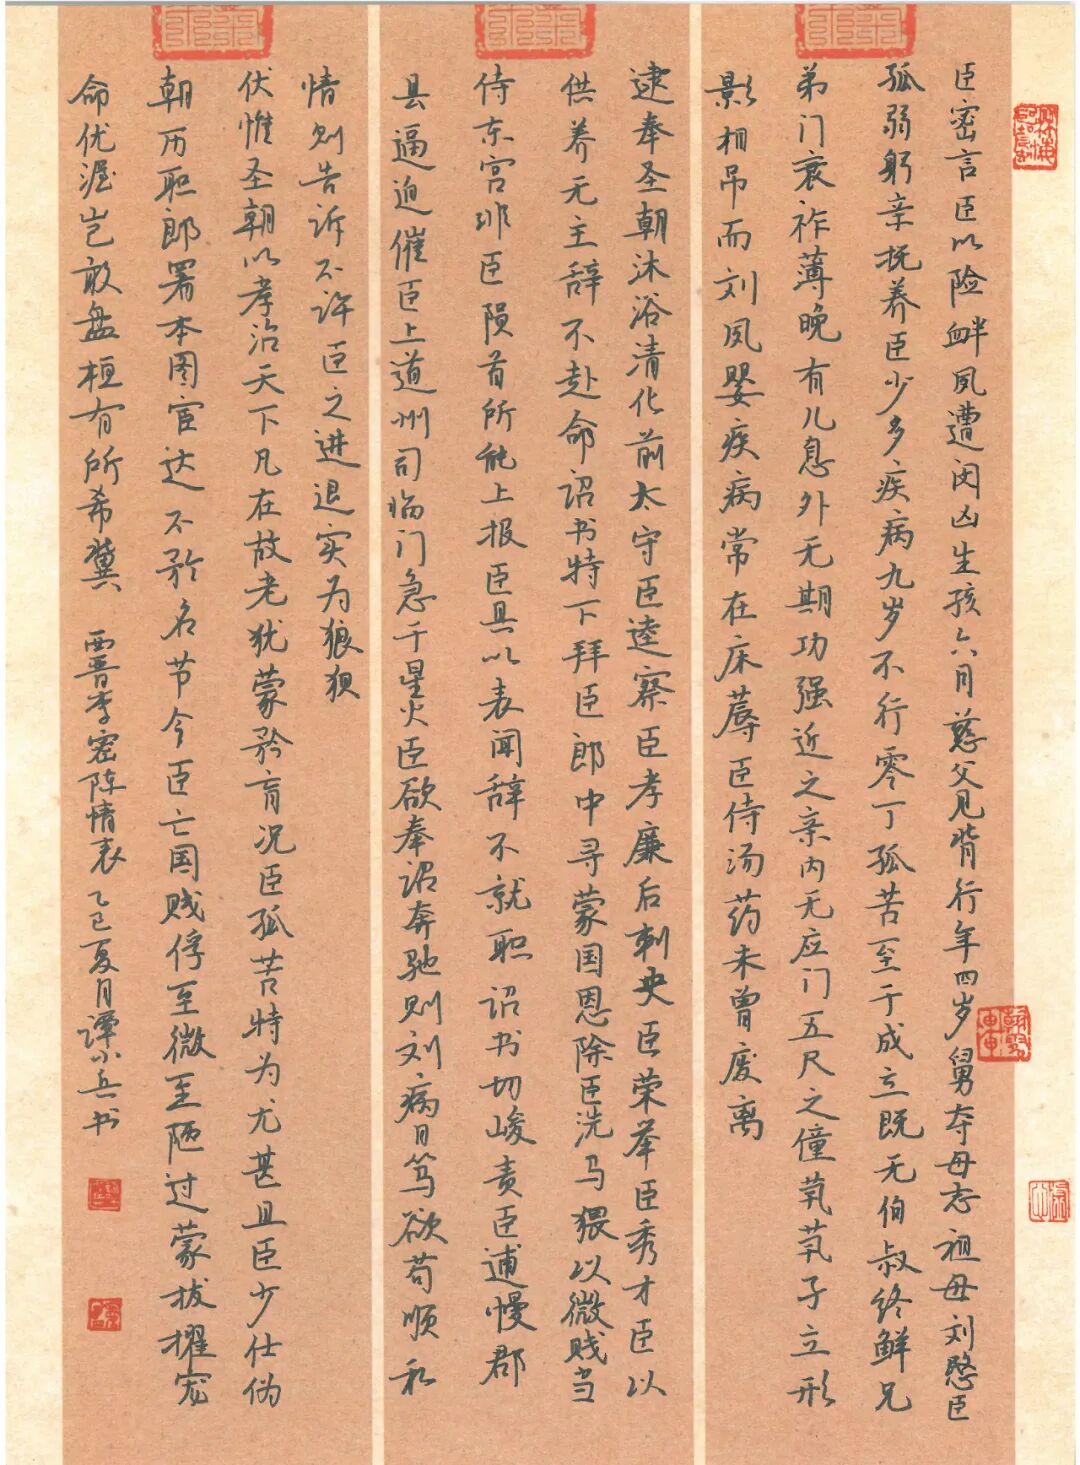 臣密言臣以险衅夙遭闵凶生孩六月慈父见背行年四岁舅夺母志祖母刘愍臣
孤弱躬亲抚养臣少多疾病九岁不行零丁孤苦至于成立既无伯叔终鲜兄
弟门衰祚薄晚有儿息外无期功强近之亲内无应门五尺之僮茕茕孑立形
影相吊而刘夙婴疾病常在床蓐臣侍汤药未曾废离
逮奉圣朝沐浴清化前太守臣逵察臣孝廉后刺史臣荣举臣秀才臣以
供养无主辞不赴命诏书特下拜臣郎中寻蒙国恩除臣洗马猥以微贱当
侍东宫非臣陨首所能上报臣具以表闻辞不就职诏书切峻责臣逋慢郡
县逼迫催臣上道州司临门急于星火臣欲奉诏奔驰则刘病日笃欲苟顺私
情则告诉不许臣之进退实为狼狈
伏惟圣朝以孝治天下凡在故老犹蒙矜育况臣孤苦特为尤甚且臣少仕伪
朝历职郎署本图宦达不矜名节今臣亡国贱俘至微至陋过蒙拔擢宠
命优渥岂敢盘桓有所希冀 西晋李密陈情表 乙巳夏月谭小兵书